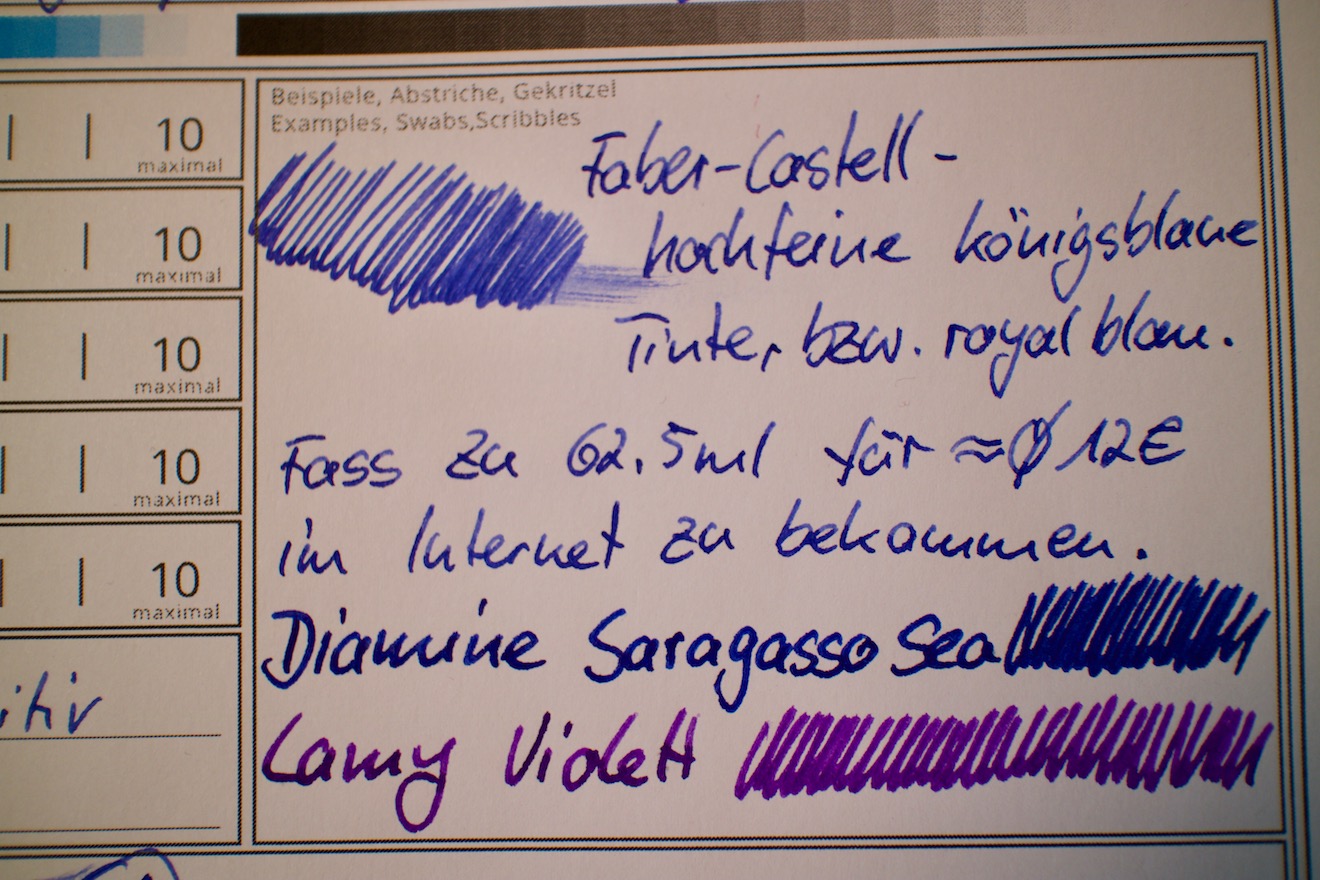 10
maximal
10
maximal
10
maximal
10
maximal
10
maximal
itiv
Beispiele, Abstriche, Gekritzel
Examples, Swabs,Scribbles
Faber-Castell-
hochfeine königsblaue
Tinte, bzw. royal blau.
Fass zu 62.5ml für ≈Ø 12€
im Internet zu bekommen.
Diamine Saragasso Sea
Lamy Violett